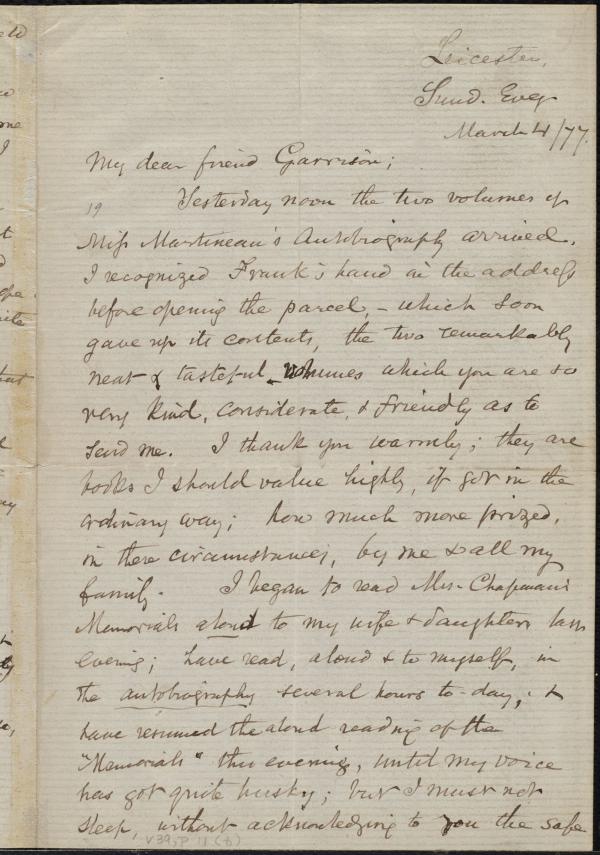 Leicester,
Sund. Eveg
March 4/77.
My dear friend Garrison;
19
Yesterday noon the two volumes of
Miss Martineau's Autobiography arrived.
I recognized Frank's hand in the address
before opening the parcel, - which soon
gave up its contents, the two remarkably
neat & tasteful volumes which you are so
very kind, considerate, & friendly as to
send me. I thank you warmly; they are
books I should value highly, if got in the
ordinary way; how much more prized,
in these circumstances, by me & all my
family. I began to read Mrs. Chapman's
Memorials aloud to my wife & daughters last
evening; have read, aloud & to myself, in
the autobiography several hours to-day; &
have resumed the aloud reading of the
"Memorials" this evening, until my voice
has got quite husky; but I must not
sleep, without acknowledging to you the safe
v.39, p. 11 (b)